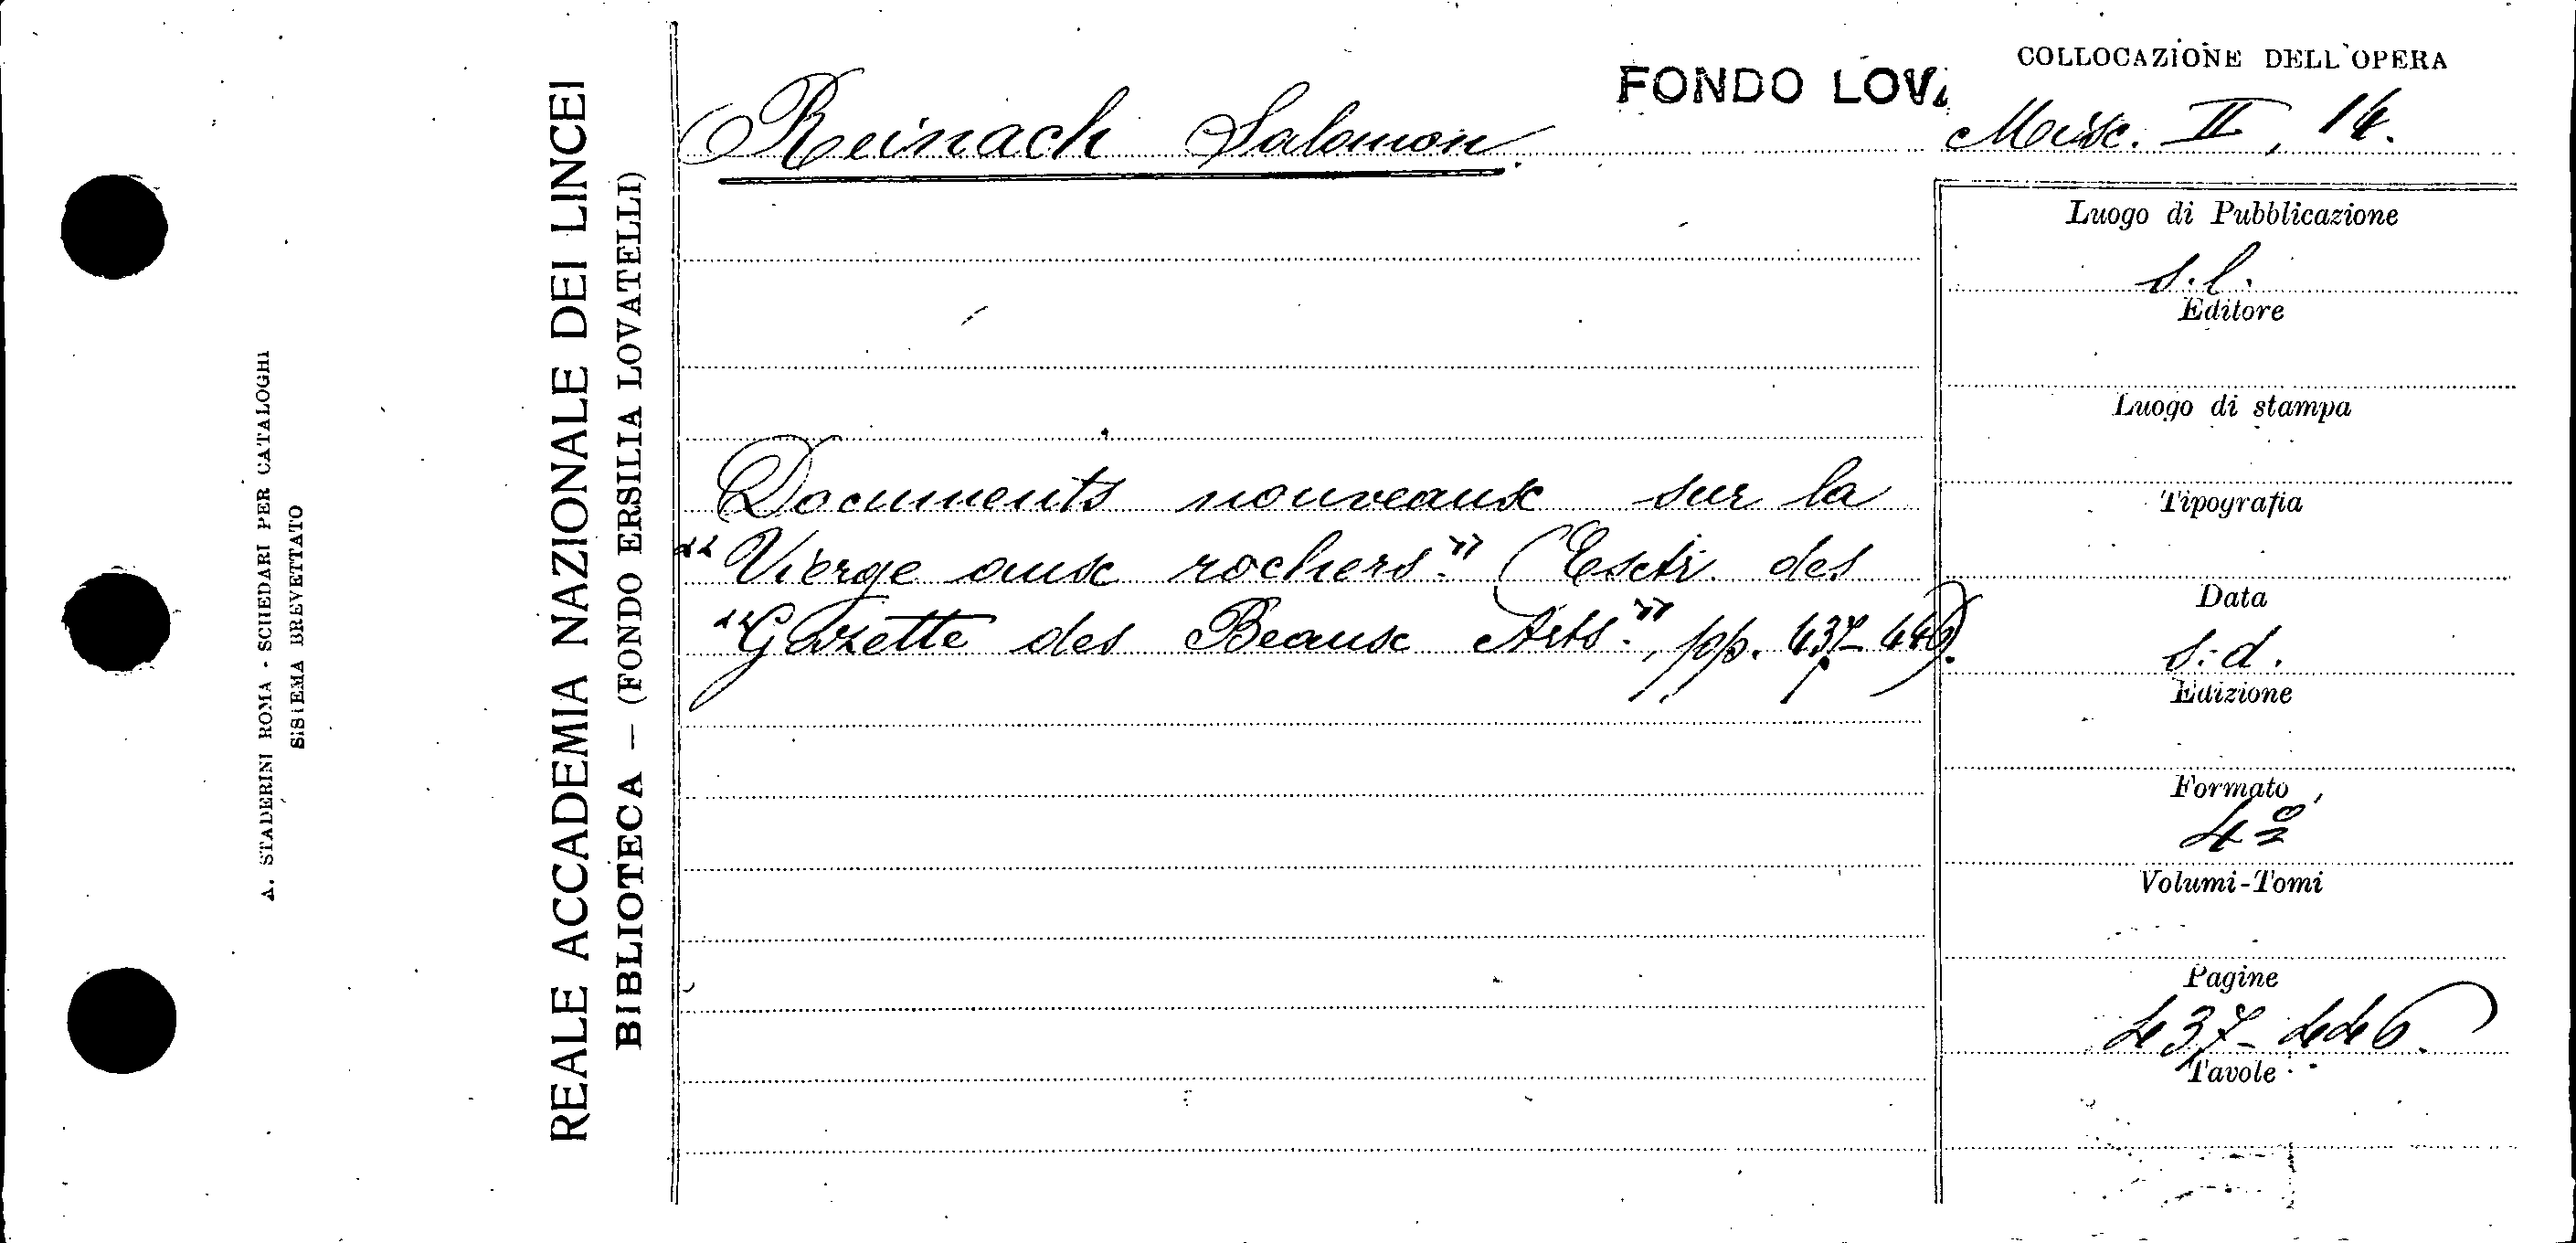 A. STADERINI ROMA - SCHEDARI PER CATALOGHI
SISTEMA BREVETTATO
REALE ACCADEMIA NAZIONALE DEI LINCEI
BIBLIOTECA — (FONDO ERSILIA LOVATELLI)
FONDO LOVA
COLLOCAZIONE DELL'OPERA
Reinach Salomon.
Misc. II, 14.
Documents nouveaux sur la
"Vierge aux rochers." (Extr. des
"Gazette des Beaux Arts.", pp. 437-446).
Luogo di Pubblicazione
s.l.
Editore
Luogo di stampa
Tipografia
Data
s.d.
Edizione
Formato
4º
Volumi-Tomi
Pagine
437-446.
Tavole